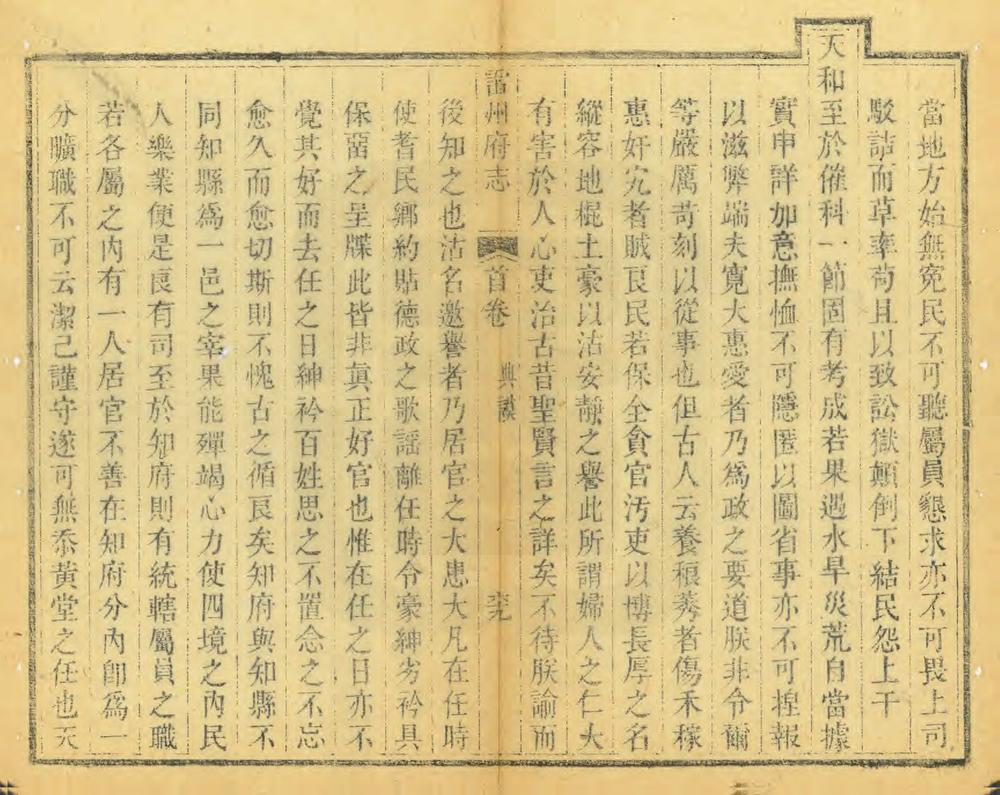 當地方始無冤民不可聽屬員懇求亦不可畏上司
駁詰而草率苟且以致訟獄顛倒下結民怨上干
天和至於催科一節固有考成若果遇水旱災荒自當據
實申詳加意撫恤不可隱匿以圖省事亦不可捏報
以滋弊端夫寬大惠愛者乃為政之要道朕非令爾
等嚴厲苛刻以從事也但古人云養稂莠者傷禾稼
惠奸宄者賊良民若保全貪官汚吏以博長厚之名
縱容地棍土豪以沽安靜之譽此所謂婦人之仁大
有害於人心吏治古昔聖賢言之詳矣不待朕諭而
雷州府志 首卷 典謨
後知之也沽名邀譽者乃居官之大患大凡在任時
使耆民鄉約貼德政之歌謠離任時令豪紳劣衿具
保留之呈牒此皆非真正好官也惟在任之日亦不
覺其好而去任之日紳衿百姓思之不置念之不忘
愈久而愈切斯則不愧古之循良矣知府與知縣不
同知縣為一邑之宰果能殫竭心力使四境之內民
人樂業便是良有司至於知府則有統轄屬員之職
若各屬之內有一人居官不善在知府分內卽為一
分曠職不可云潔己謹守遂可無忝黃堂之任也天